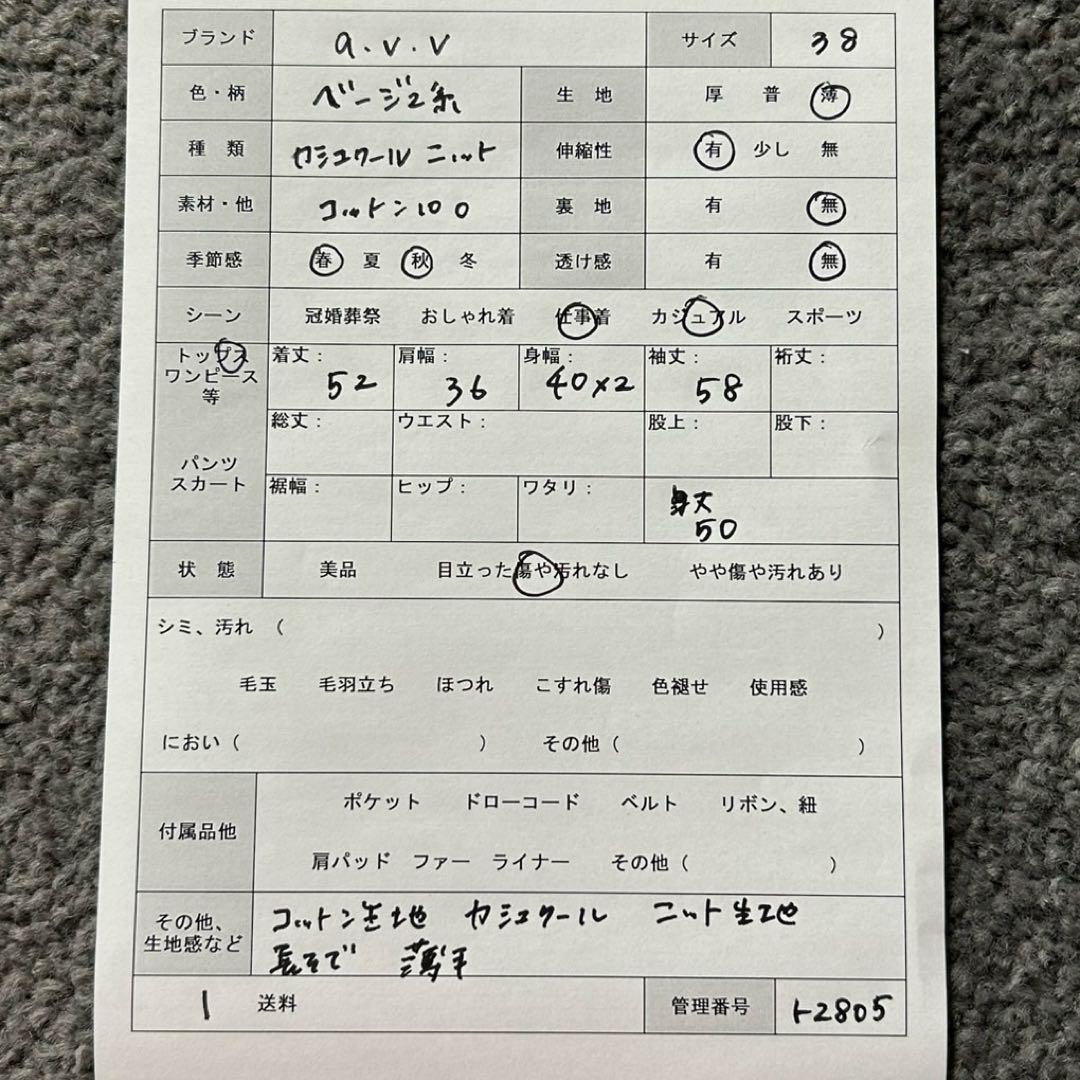 ブランド a.v.v サイズ 38
色・柄 ベージュ系 生地 厚 普 薄
種類 カシュクール ニット 伸縮性 有 少し 無
素材・他 コットン100 裏地 有 無
季節感 春 夏 秋 冬 透け感 有 無
シーン 冠婚葬祭 おしゃれ着 仕事着 カジュアル スポーツ
トップス
ワンピース
等
着丈: 52 肩幅: 36 身幅: 40×2 袖丈: 58 裄丈:
パンツ
スカート
総丈: ウエスト: 股上: 股下:
裾幅: ヒップ: ワタリ: 身丈
50
状態 美品 目立った傷や汚れなし やや傷や汚れあり
シミ、汚れ ( )
毛玉 毛羽立ち ほつれ こすれ傷 色褪せ 使用感
におい ( ) その他 ( )
付属品他
ポケット ドローコード ベルト リボン、紐
肩パッド ファー ライナー その他 ( )
その他、
生地感など
コットン生地 カシュクール ニット生地
長そで 薄手
1 送料 管理番号 ト2805